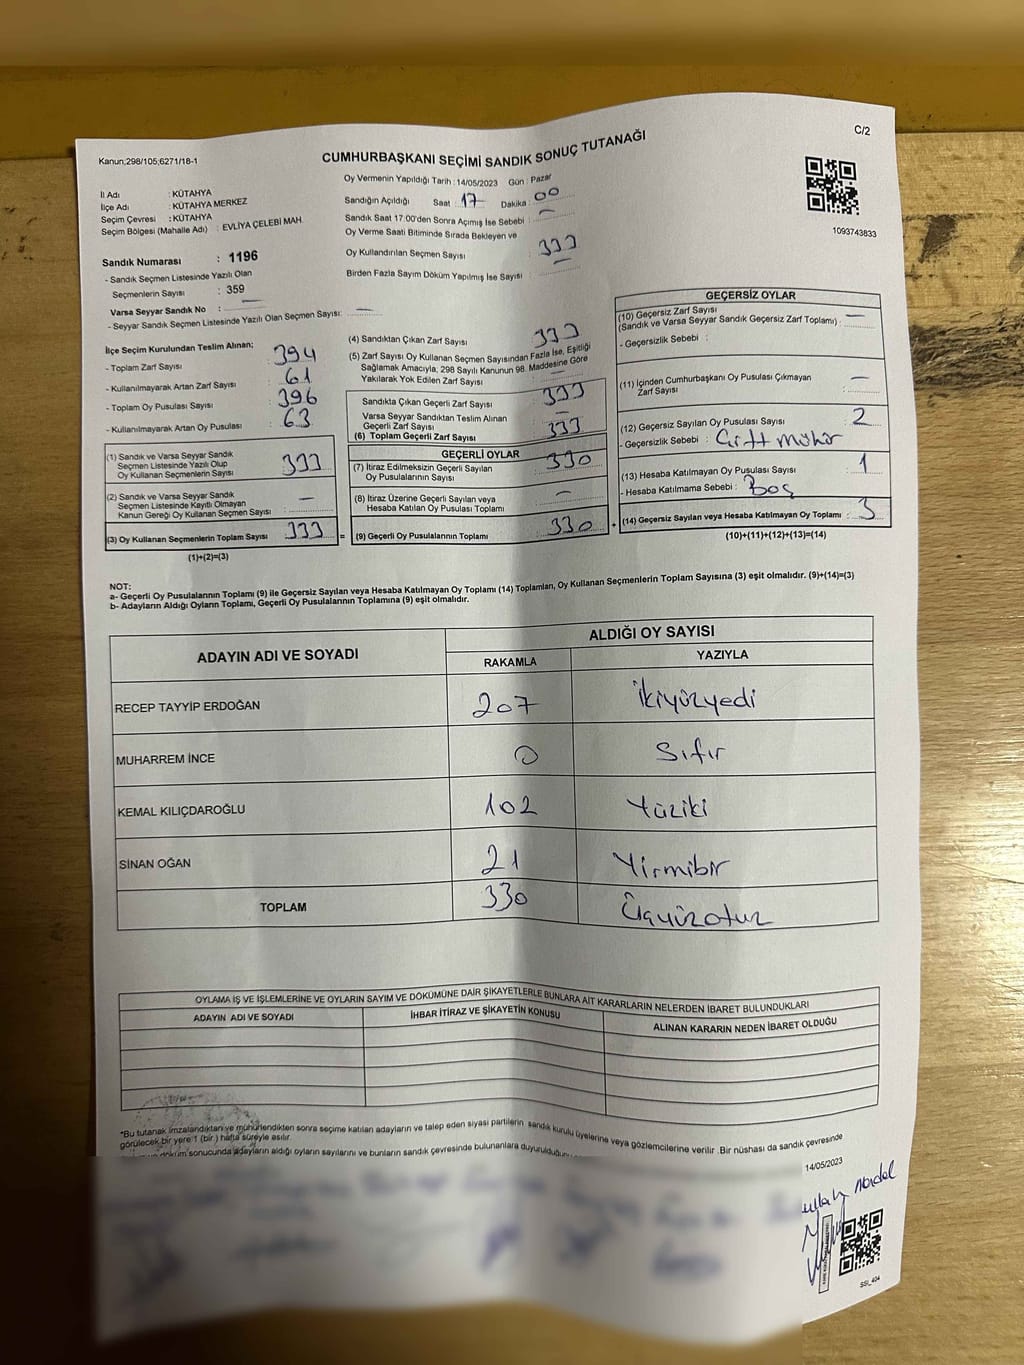 C/2
Kanun;298/105;6271/18-1
CUMHURBAŞKANI SEÇİMİ SANDIK SONUÇ TUTANAĞI
1093743833
İl Adı : KÜTAHYA
İlçe Adı : KÜTAHYA MERKEZ
Seçim Çevresi : KÜTAHYA
Seçim Bölgesi (Mahalle Adı) : EVLİYA ÇELEBİ MAH.
Sandık Numarası : 1196
- Sandık Seçmen Listesinde Yazılı Olan
Seçmenlerin Sayısı : 359
Varsa Seyyar Sandık No : —
- Seyyar Sandık Seçmen Listesinde Yazılı Olan Seçmen Sayısı: —
Oy Vermenin Yapıldığı Tarih : 14/05/2023 Gün : Pazar
Sandığın Açıldığı Saat 17 Dakika : 00
Sandık Saat 17:00'den Sonra Açımış İse Sebebi : —
Oy Verme Saati Bitiminde Sırada Bekleyen ve
Oy Kullandırılan Seçmen Sayısı : 333
Birden Fazla Sayım Döküm Yapılmış İse Sayısı : —
İlçe Seçim Kurulundan Teslim Alınan;
- Toplam Zarf Sayısı : 394
- Kullanılmayarak Artan Zarf Sayısı : 61
- Toplam Oy Pusulası Sayısı : 396
- Kullanılmayarak Artan Oy Pusulası : 63
(1) Sandık ve Varsa Seyyar Sandık
Seçmen Listesinde Yazılı Olup
Oy Kullanan Seçmenlerin Sayısı : 333
(2) Sandık ve Varsa Seyyar Sandık
Seçmen Listesinde Kayıtlı Olmayan
Kanun Gereği Oy Kullanan Seçmen Sayısı : —
(3) Oy Kullanan Seçmenlerin Toplam Sayısı : 333 =
(1)+(2)=(3)
(4) Sandıktan Çıkan Zarf Sayısı : 333
(5) Zarf Sayısı Oy Kullanan Seçmen Sayısından Fazla İse, Eşitliği
Sağlamak Amacıyla, 298 Sayılı Kanunun 98. Maddesine Göre
Yakılarak Yok Edilen Zarf Sayısı : —
Sandıkta Çıkan Geçerli Zarf Sayısı : 333
Varsa Seyyar Sandıktan Teslim Alınan
Geçerli Zarf Sayısı : —
(6) Toplam Geçerli Zarf Sayısı : 333
GEÇERLİ OYLAR
(7) İtiraz Edilmeksizin Geçerli Sayılan
Oy Pusulalarının Sayısı : 330
(8) İtiraz Üzerine Geçerli Sayılan veya
Hesaba Katılan Oy Pusulası Toplamı : —
(9) Geçerli Oy Pusulalarının Toplamı : 330 +
GEÇERSİZ OYLAR
(10) Geçersiz Zarf Sayısı
(Sandık ve Varsa Seyyar Sandık Geçersiz Zarf Toplamı) : —
- Geçersizlik Sebebi :
(11) İçinden Cumhurbaşkanı Oy Pusulası Çıkmayan
Zarf Sayısı : —
(12) Geçersiz Sayılan Oy Pusulası Sayısı : 2
- Geçersizlik Sebebi : Çift mühür
(13) Hesaba Katılmayan Oy Pusulası Sayısı : 1
- Hesaba Katılmama Sebebi : Boş
(14) Geçersiz Sayılan veya Hesaba Katılmayan Oy Toplamı : 3
(10)+(11)+(12)+(13)=(14)
NOT:
a- Geçerli Oy Pusulaları Toplamı (9) ile Geçersiz Sayılan veya Hesaba Katılmayan Oy Toplamı (14) Toplamları, Oy Kullanan Seçmenlerin Toplam Sayısına (3) eşit olmalıdır. (9)+(14)=(3)
b- Adayların Aldığı Oyların Toplamı, Geçerli Oy Pusulalarının Toplamına (9) eşit olmalıdır.
ADAYIN ADI VE SOYADI ALDIĞI OY SAYISI
RAKAMLA YAZIYLA
RECEP TAYYİP ERDOĞAN 207 İkiyüzyedi
MUHARREM İNCE 0 Sıfır
KEMAL KILIÇDAROĞLU 102 Yüziki
SİNAN OĞAN 21 Yirmibir
TOPLAM 330 Üçyüzotuz
OYLAMA İŞ VE İŞLEMLERİNE VE OYLARIN SAYIM VE DÖKÜMÜNE DAİR ŞİKAYETLERLE BUNLARA AİT KARARLARIN NELERDEN İBARET BULUNDUKLARI
ADAYIN ADI VE SOYADI İHBAR İTİRAZ VE ŞİKAYETİN KONUSU ALINAN KARARIN NEDEN İBARET OLDUĞU
*Bu tutanak imzalandıktan ve mühürlendikten sonra seçime katılan adayların ve talep eden siyasi partilerin sandık kurulu üyelerine veya gözlemcilerine verilir .Bir nüshası da sandık çevresinde
görülecek bir yere 1 (bir ) hafta süreyle asılır.
döküm sonucunda adayların aldığı oyların sayılarını ve bunların sandık çevresinde bulunanlara duyurulduğunu
14/05/2023
SSİ_404